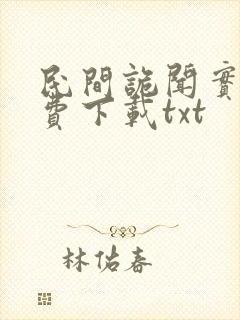 民間詭聞實
費下載txt
林佑春